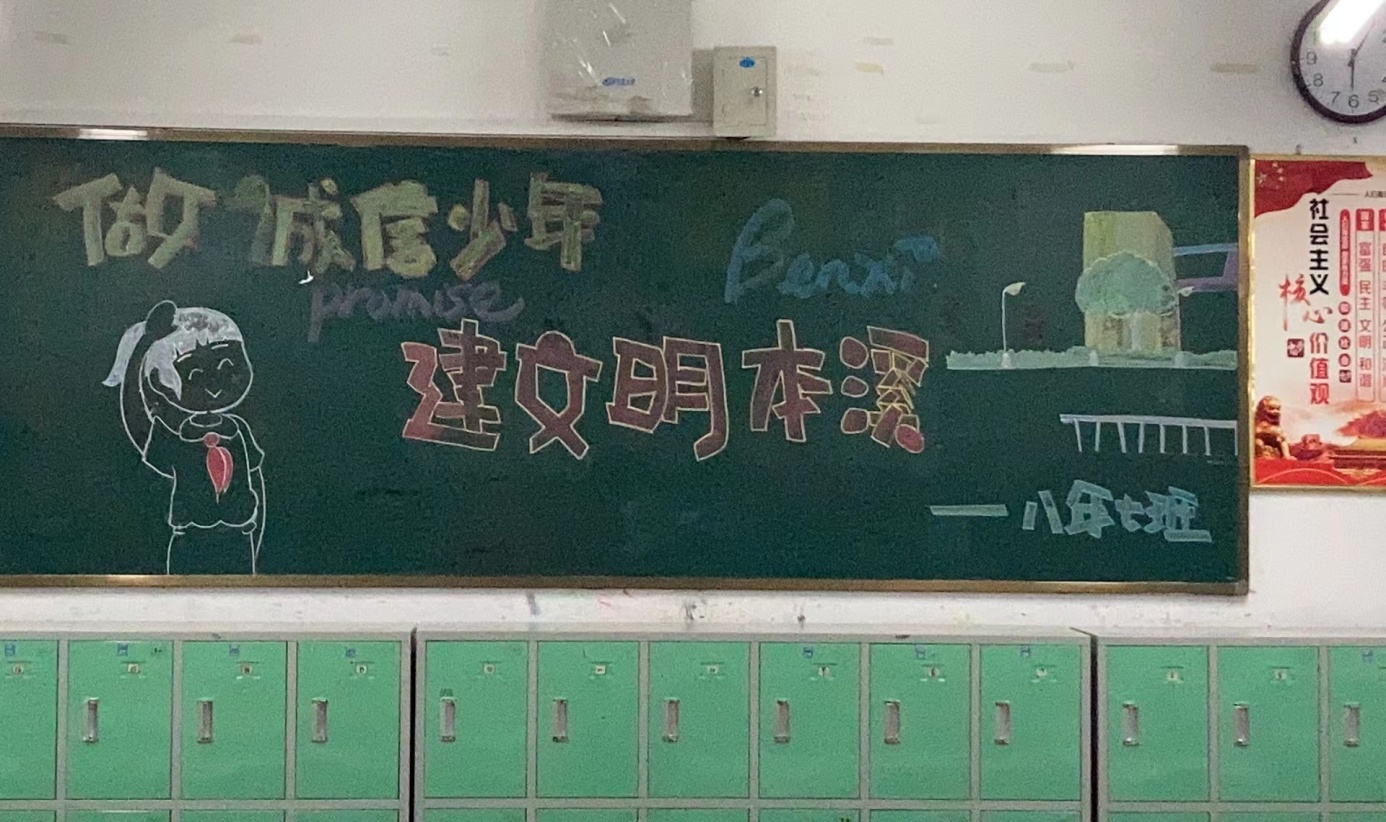 做诚信少年
promise
Benxi
建文明本溪
—八年七班
社会主义
核心价值观
富强 民主 文明 和谐
9
8
7
6
5